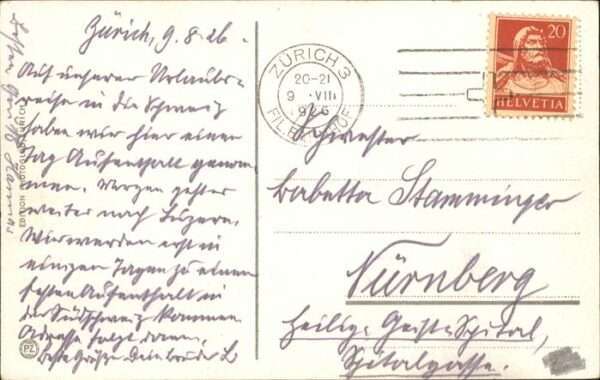 Zürich, 9.8.26.
Auf unserer Urlaubs-
reise in die Schweiz
haben wir hier einen
Tag Aufenthalt genom-
men. Morgen gehts
weiter nach Luzern.
Wir werden erst in
einigen Tagen zu einem
festen Aufenthalt in
der Südschweiz kommen.
Adresse folgt dann.
Beste Grüße Dein Bruder L
Besten Hannos
EDITION PHOTOGLOB ZÜRICH
PZ
ZÜRICH 3
20-21
9. VIII
1926
FIL. BAHNHOF
20
HELVETIA
Schwester
Babetta Stamminger
Nürnberg
Heilig-Geist-Spital,
Spitalgasse.